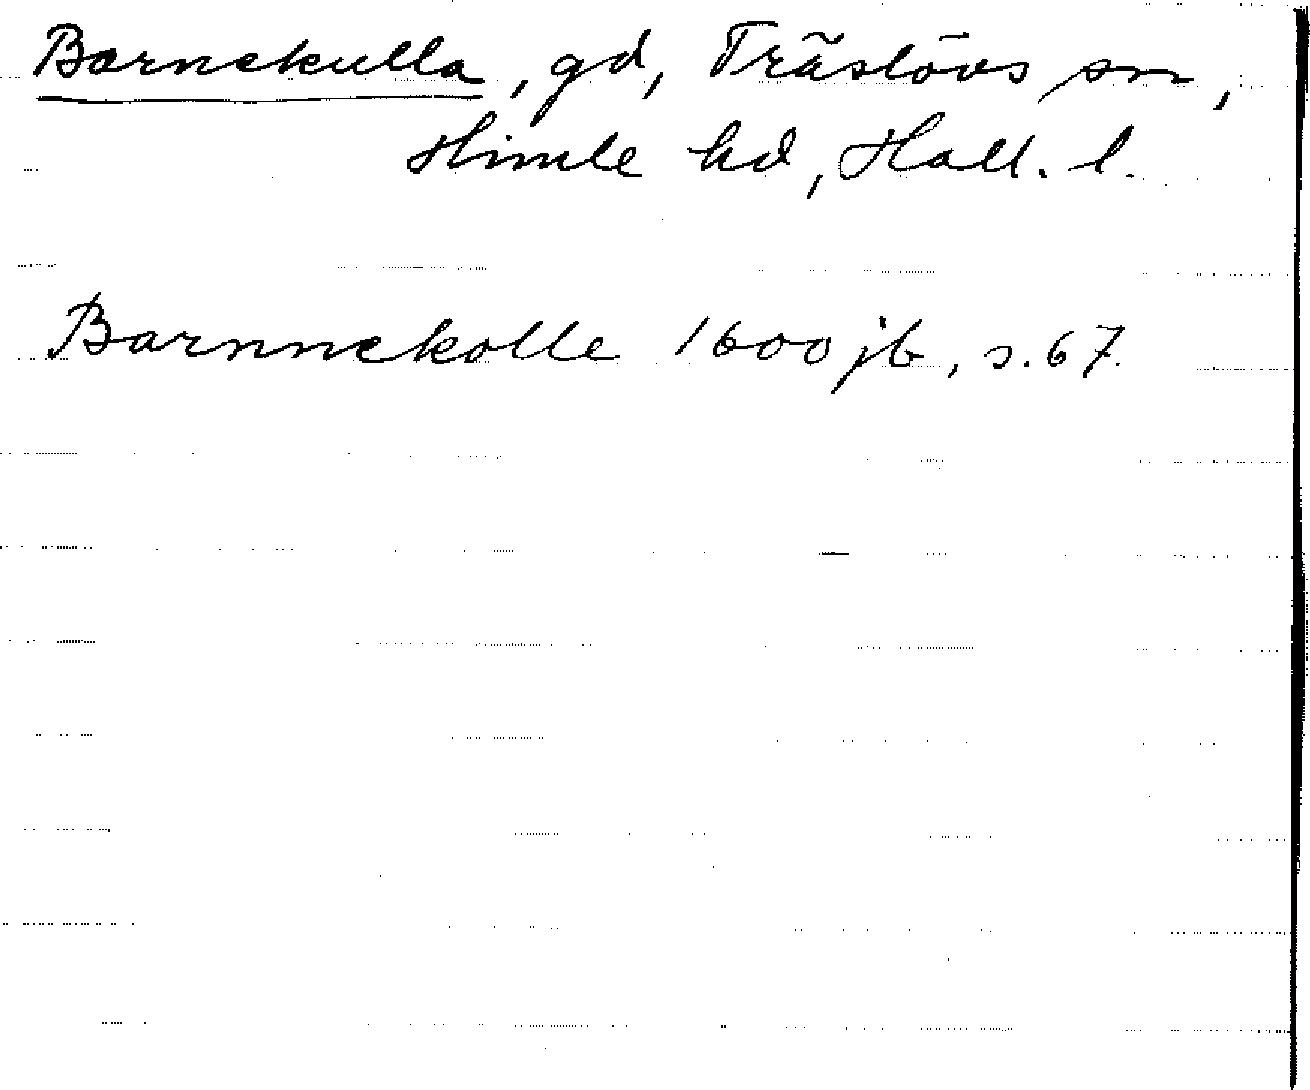 Barnekulla, gd, Träslövs sn,
Himle hd, Hall. l.
Barnnekolle 1600 jb, s. 67.